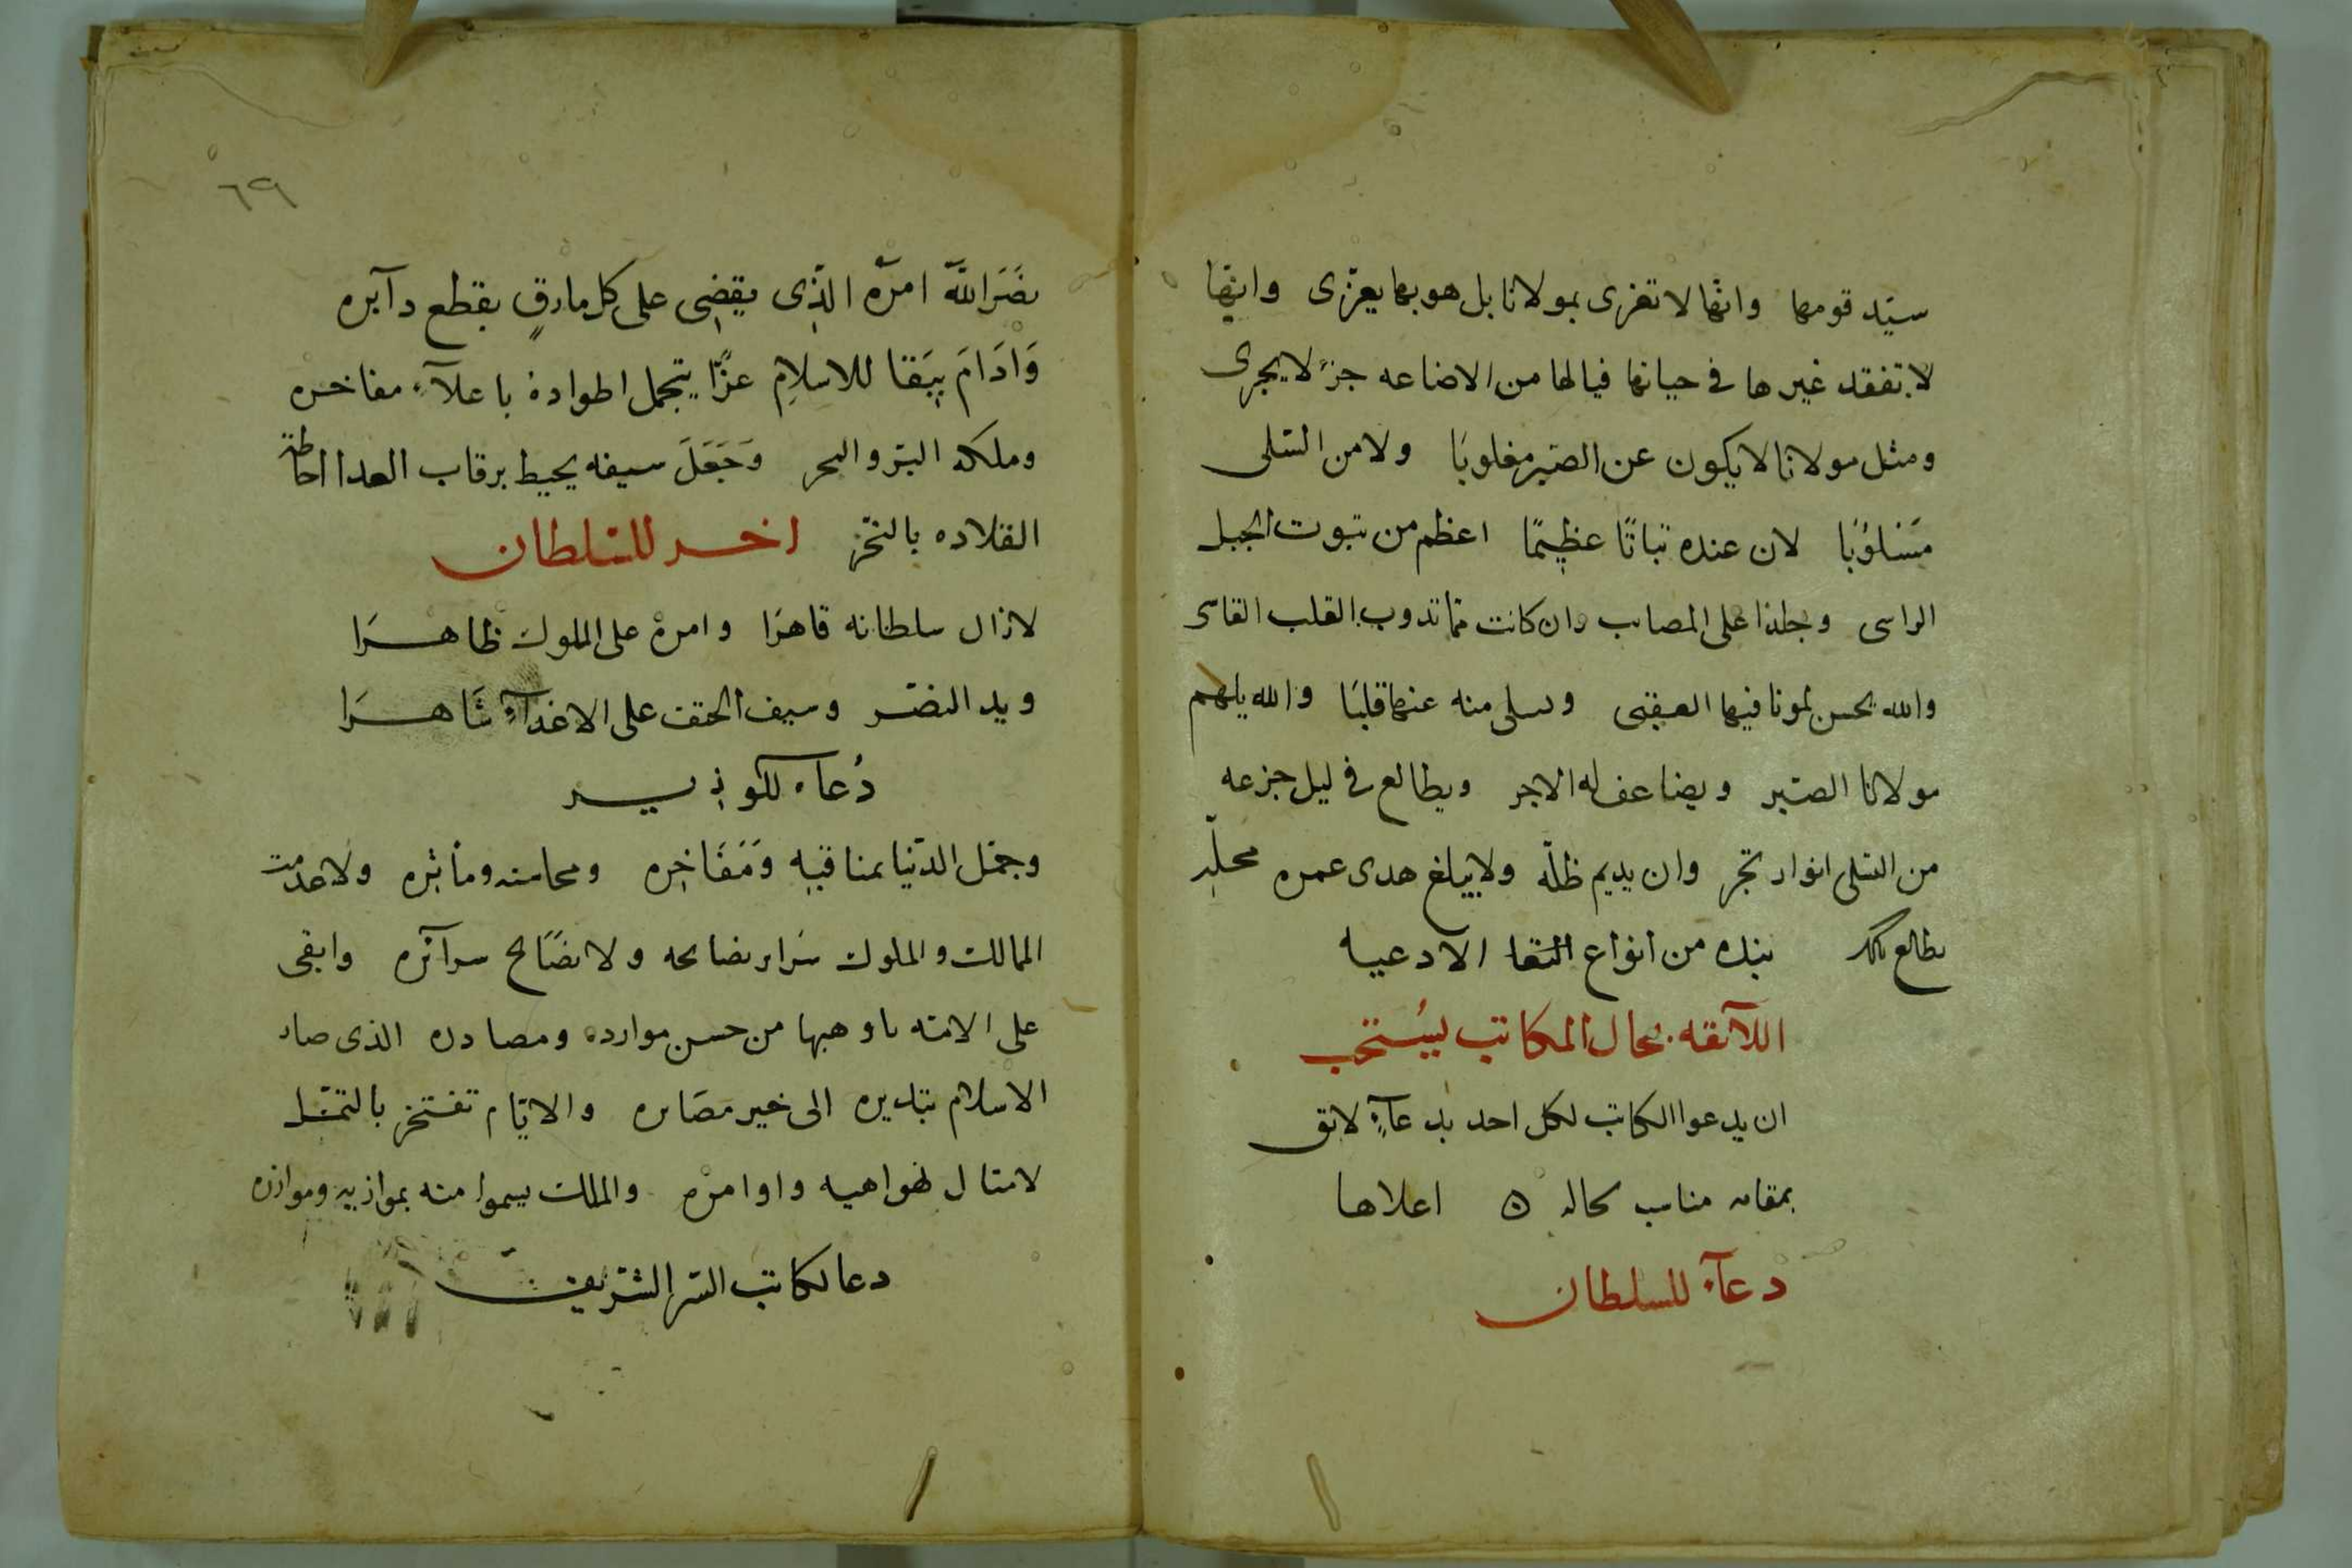 سيّد قومها وانّها لا تعزى بمولانا بل هو بها يعزّى وانّها
لا تفقد غيرها فى حياتها فيالها من الاضاعه جزءً لا يجرى
ومثل مولانا لا يكون عن الصّبر مغلوبًا ولا من السّلى
مَسْلوُبًا لان عنده ثباتًا عظيمًا اعظم من ثبوت الجبل
الراسى وجلدا على المصايب وان كانت ممّا تدوب القلب القاسى
والله يحسن لمونا فيها العقبى ويسلى منه عنها قلبًا والله يلهم
مولانا الصّبر ويضاعف له الاجر ويطالع فى ليل جزعه
من السّلى انوار تجر وان يديم ظلّه ولا يبلغ هدى عمره محلّه
يطالع بذلك نبده من انواع الادعيه
اللآئقه بحال المكاتب يسُتحب
ان يدعوا الكاتب لكل احد بدعآءٍ لائق
بمقامه مناسب لحاله ٥ اعلاها
دعآء للسلطان
٦٩
نصَرَ اللّه امرَه الذّى يقضِى على كل مارقٍ بقطع دآبره
وَادَامَ بِبَقا للاسلامِ عزًّا يتجمل اطواده باعلآءِ مفاخره
وملكه البرّ والبحر وَجَعَلَ سيفه يحيط برقاب العدا احاطة
القلاده بالنحر اخر للسّلطان
لازال سلطانه قاهرًا وامره على الملوك ظاهرًا
ويد النصّر وسيف الحتف على الاعدآءِ شَاهرًا
دُعاء للوزير
وجمّل الدّنيا بمناقبِه وَمَفَاخِره ومحاسنه ومأثره ولا عدمت
الممالك والملوك سَراير نصايحه ولا نصَايح سرآئره وابقى
على الامّه ما وهبها من حسن موارده ومصادره الذى صار
الاسلام بتدبيره الى خير مصَايره والايّام تفتخر بالتمثّل
لامتثال نواهيه واوامرْه والملك يسموا منه بموازيه وموازره
دعا لكاتب السّر الشّريف